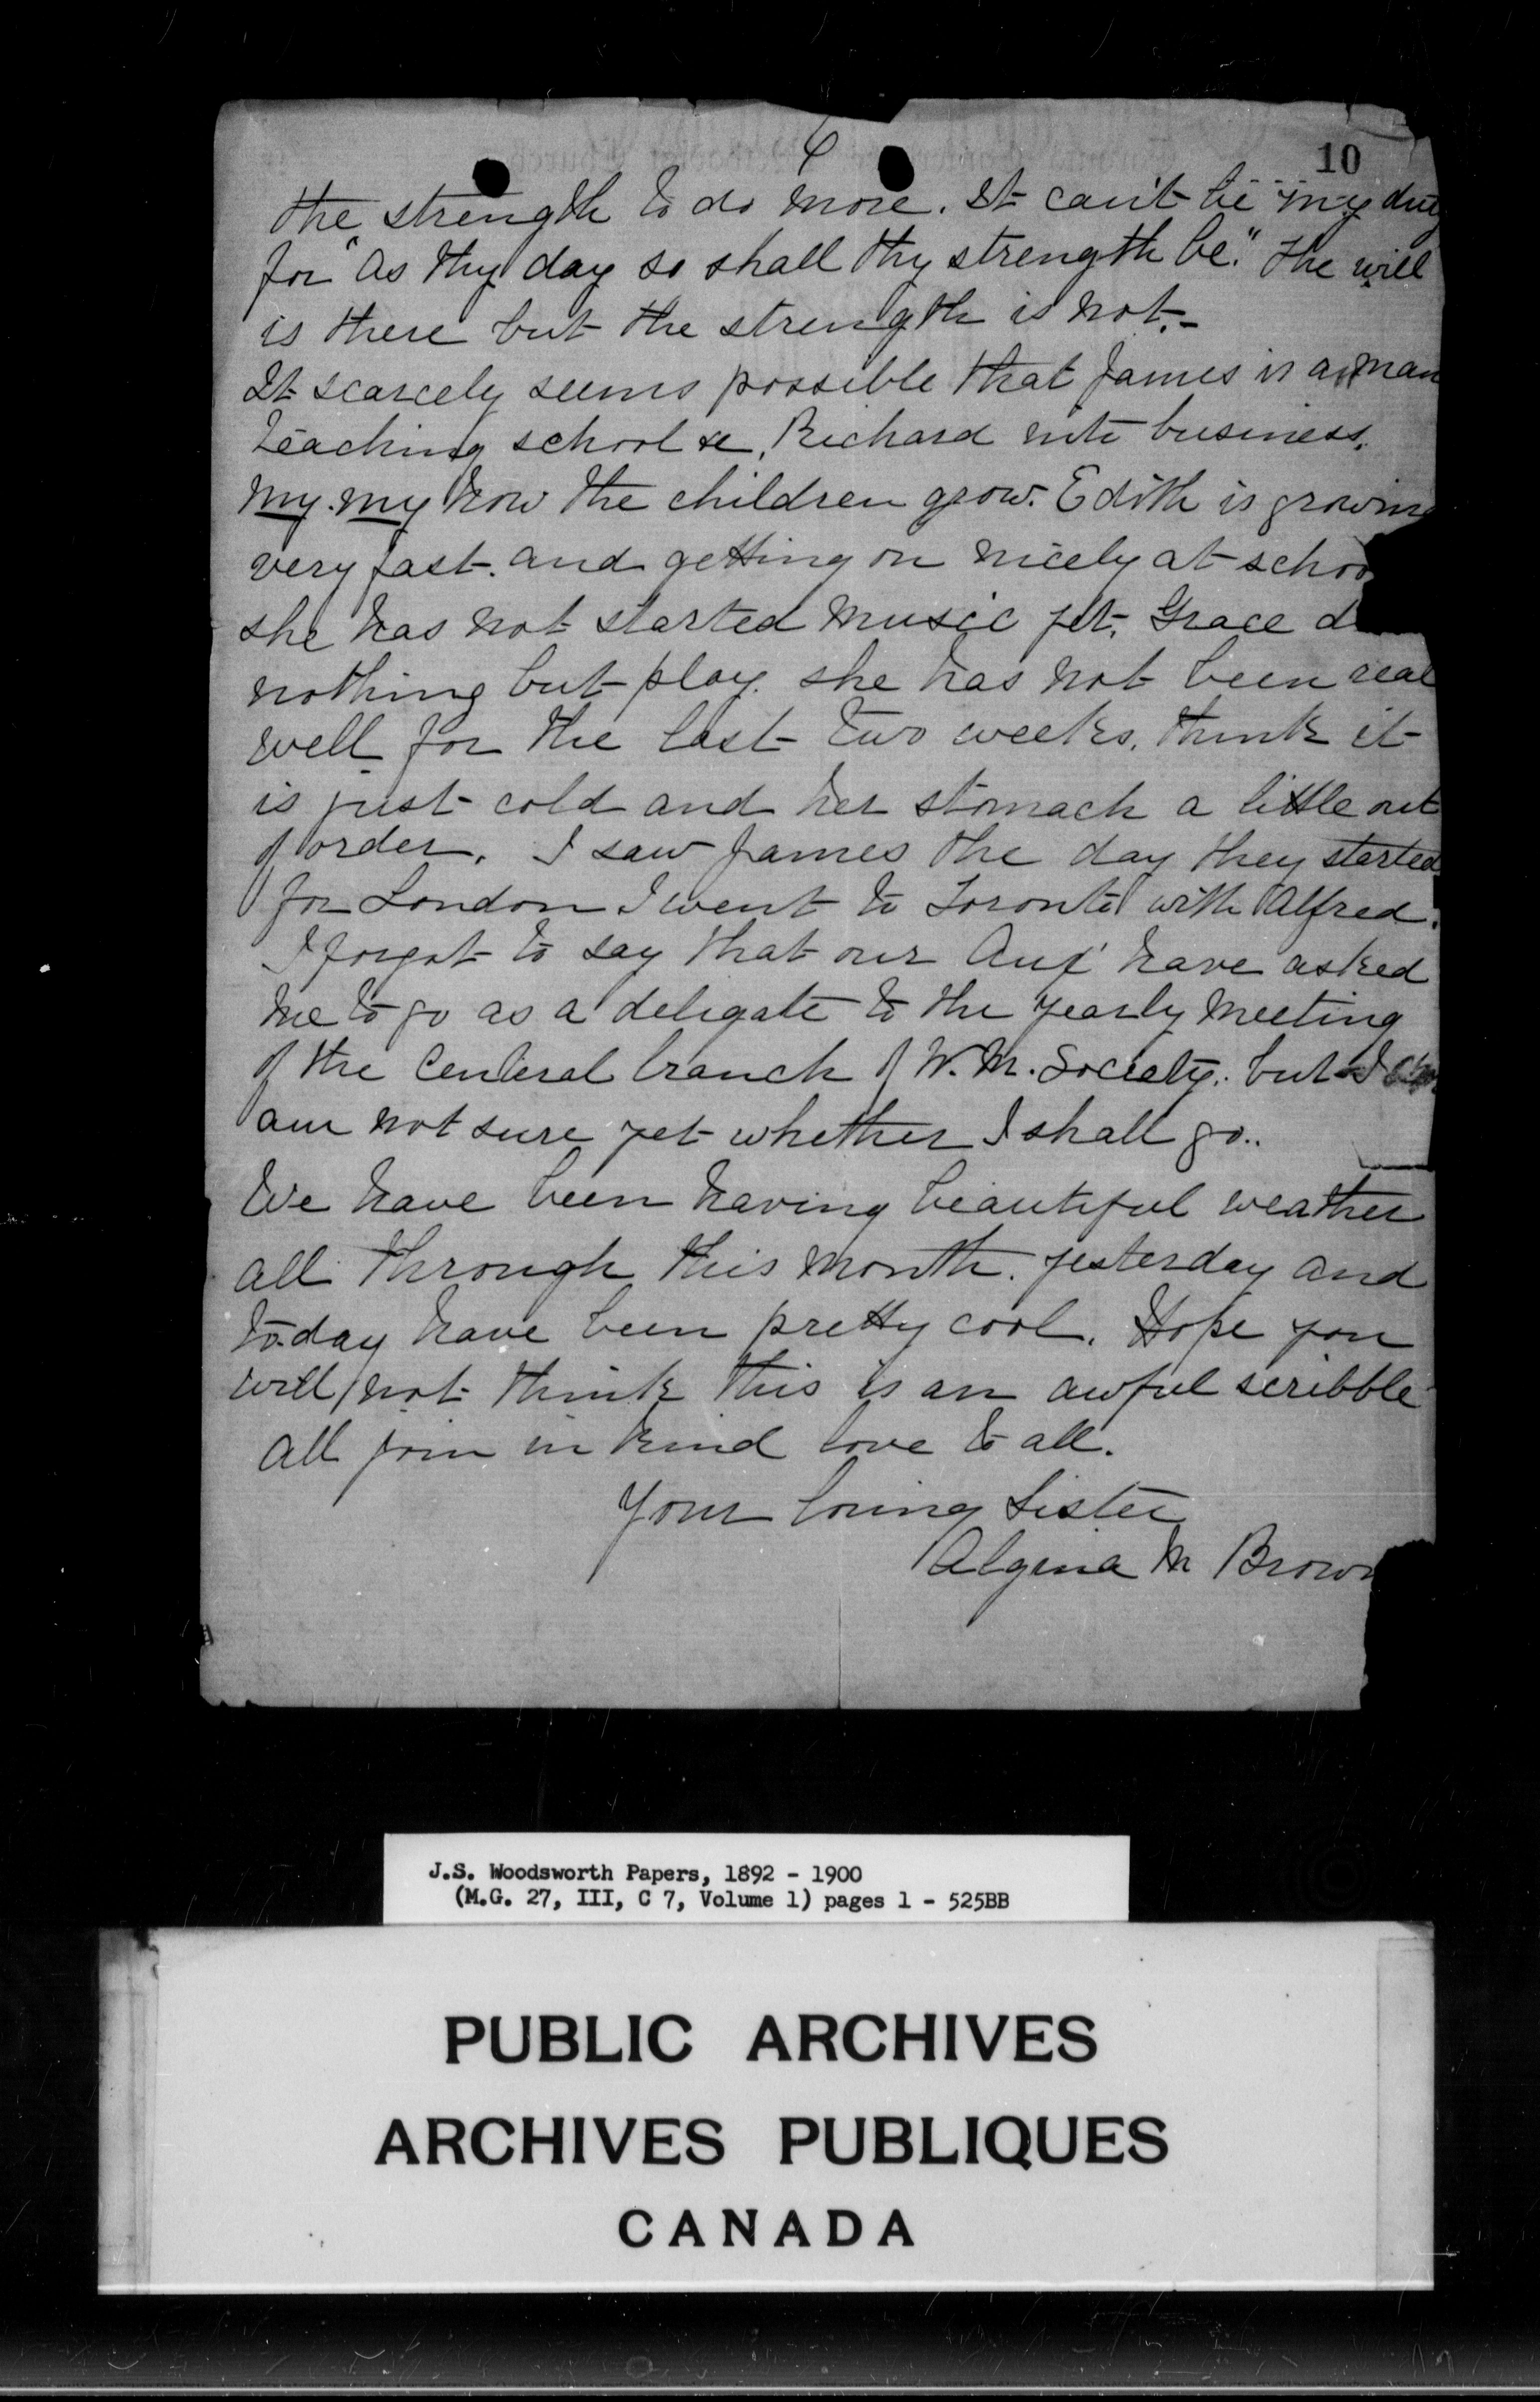 6
10
the strength to do more. It can't be my duty
for "as thy day so shall thy strength be." the will
is there but the strength is not.-
It scarcely seems possible that James is a man
teaching school &c, Richard into business.
my. my how the children grow. Edith is growing
very fast. and getting on nicely at schoo
she has not started music yet. Grace d
nothing but play. she has not been real
well for the last two weeks, think it
is just cold and her stomach a little out
of order. I saw James the day they started
for London I went to Toronto with Alfred.
I forgot to say that our Aux' have asked
me to go as a deligate to the yearly meeting
of the Central branch of W. M. Society. but I
am not sure yet whether I shall go..
We have been having beautiful weather
all through this month. yesterday and
to-day have been pretty cool. Hope you
will not think this is an awful scribble
all join in kind love to all.
Your loving Sister
M Brown
J.S. Woodsworth Papers, 1892 - 1900
(M.G. 27, III, C 7, Volume 1) pages 1 - 525BB
PUBLIC ARCHIVES
ARCHIVES PUBLIQUES
CANADA